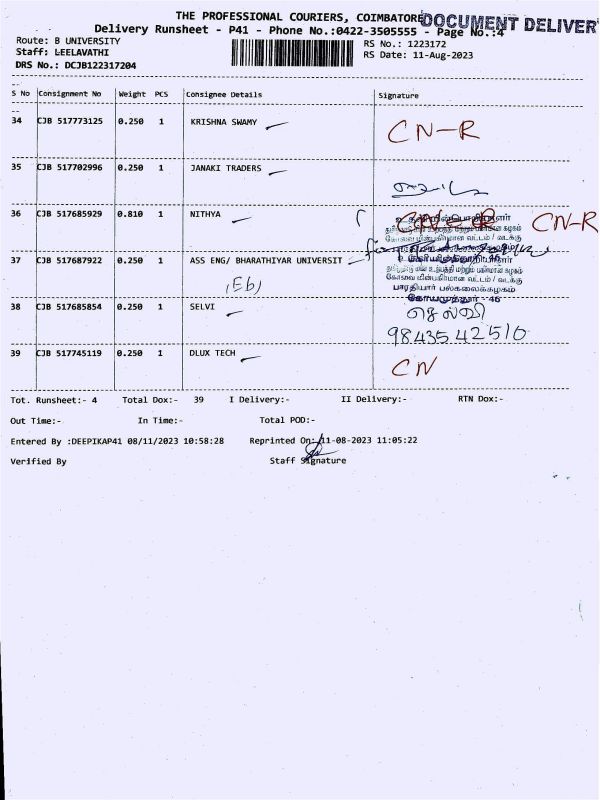 THE PROFESSIONAL COURIERS, COIMBATORE
DOCUMENT DELIVER
Delivery Runsheet - P41 - Phone No.:0422-3505555 - Page No.:4
Route: B UNIVERSITY
RS No.: 1223172
Staff: LEELAVATHI
RS Date: 11-Aug-2023
DRS No.: DCJB122317204
S No Consignment No Weight PCS Consignee Details Signature
34 CJB 517773125 0.250 1 KRISHNA SWAMY CN-R
35 CJB 517702996 0.250 1 JANAKI TRADERS
36 CJB 517685929 0.810 1 NITHYA CN-R
37 CJB 517687922 0.250 1 ASS ENG/ BHARATHIYAR UNIVERSIT
(Eb)
கோவை மின்பகிர்மான வட்டம் / வடக்கு
பாரதியார் பல்கலைக்கழகம்
கோயமுத்தூர் - 46
38 CJB 517685854 0.250 1 SELVI செல்வி
9843542510
39 CJB 517745119 0.250 1 DLUX TECH CN
Tot. Runsheet:- 4 Total Dox:- 39 I Delivery:- II Delivery:- RTN Dox:-
Out Time:- In Time:- Total POD:-
Entered By :DEEPIKAP41 08/11/2023 10:58:28 Reprinted On: 11-08-2023 11:05:22
Verified By Staff Signature